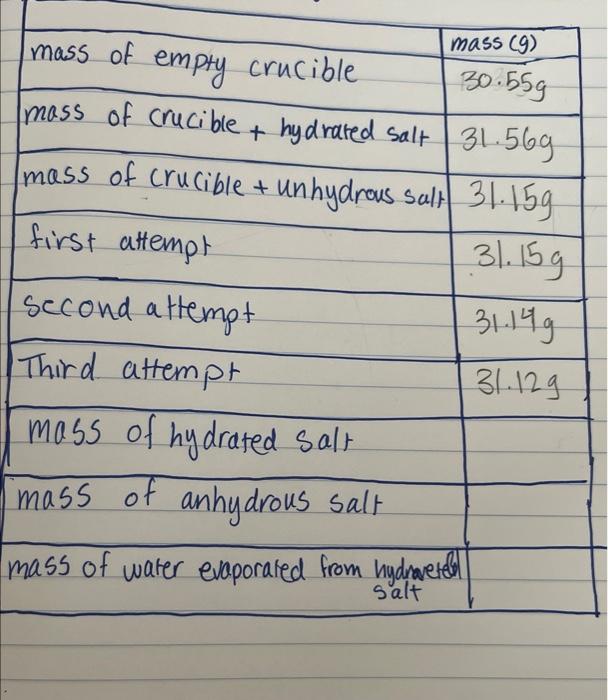 mass (g)
mass of empty crucible 30.55g
mass of crucible + hydrated salt 31.56g
mass of crucible + unhydrous salt 31.15g
first attempt 31.15g
second attempt 31.14g
Third attempt 31.12g
mass of hydrated salt
mass of anhydrous salt
mass of water evaporated from
salt